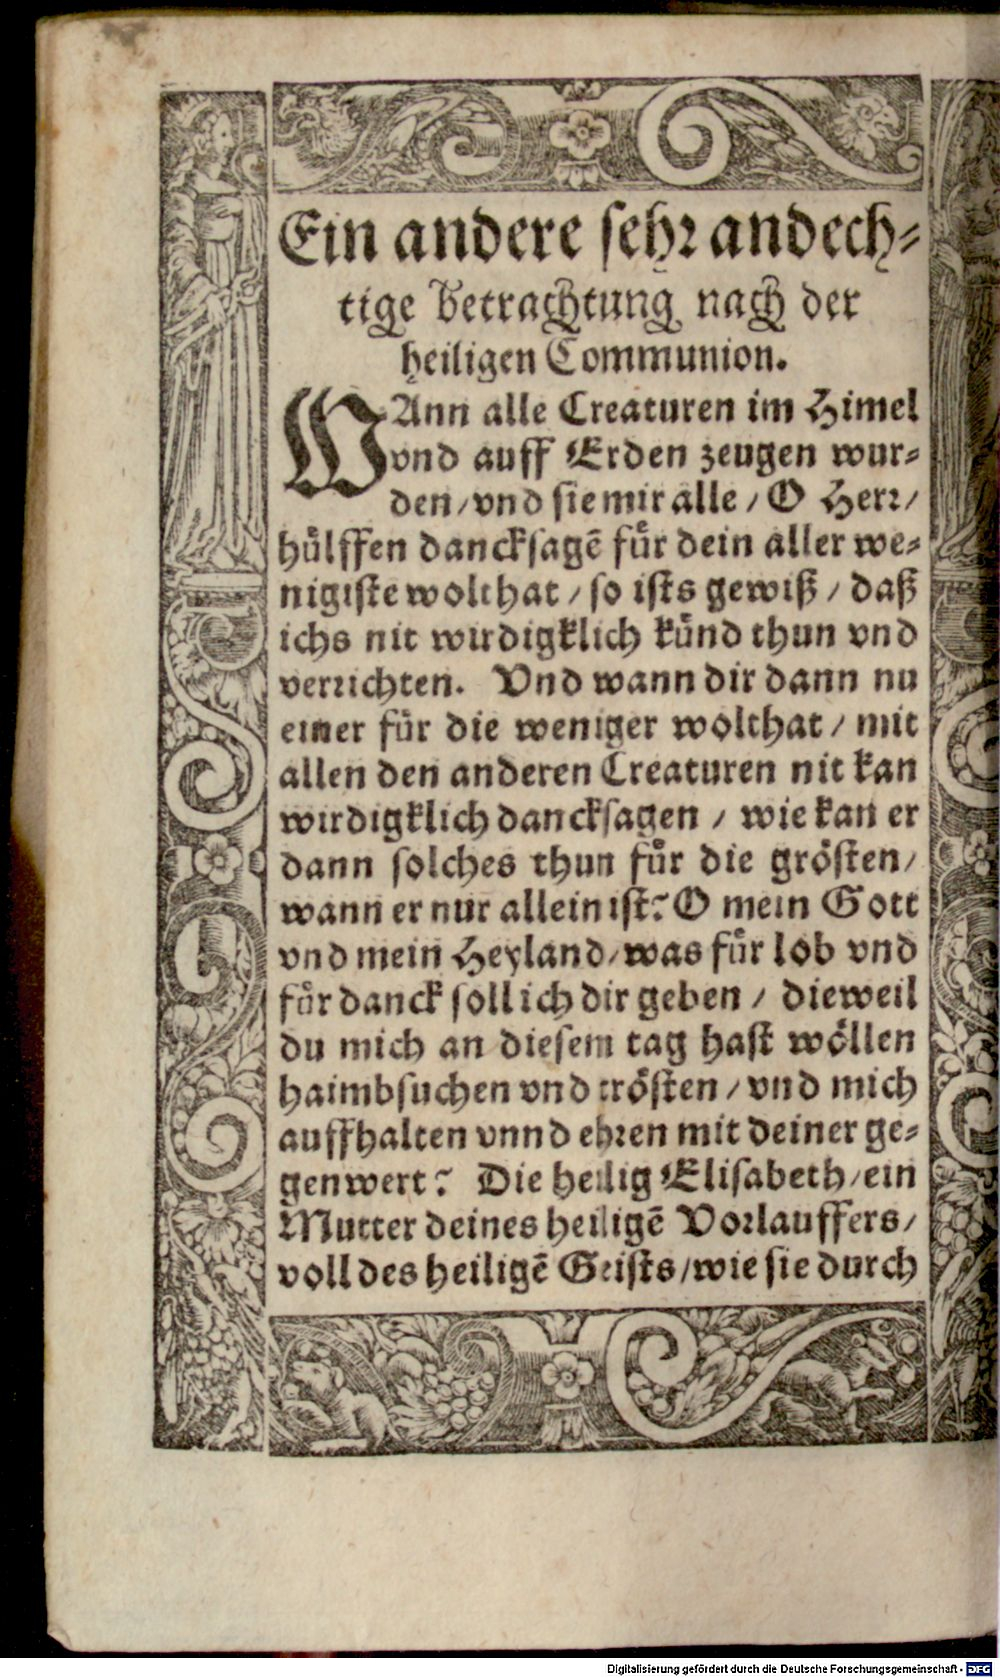 Ein andere sehr andech⸗
tige Betrachtung nach der
heiligen Communion.
WAnn alle Creaturen im Himel
vnd auff Erden zeugen wur⸗
den/ vnd sie mir alle / O Herr/
hülffen dancksagẽ für dein aller we⸗
nigiste wolthat / so ists gewiß / daß
ichs nit wirdigklich künd thun vnd
verrichten. Vnd wann dir dann nu
einer für die weniger wolthat / mit
allen den anderen Creaturen nit kan
wirdigklich dancksagen / wie kan er
dann solches thun für die grösten/
wann er nur allein ist? O mein Gott
vnd mein Heyland/ was für lob vnd
für danck soll ich dir geben / dieweil
du mich an diesem tag hast wöllen
haimbsuchen vnd trösten / vnd mich
auffhalten vnnd ehren mit deiner ge⸗
genwert? Die heilig Elisabeth/ ein
Mutter deines heiligẽ Vorlauffers/
voll des heiligẽ Geists/ wie sie durch
Digitalisierung gefördert durch die Deutsche Forschungsgemeinschaft - DFG